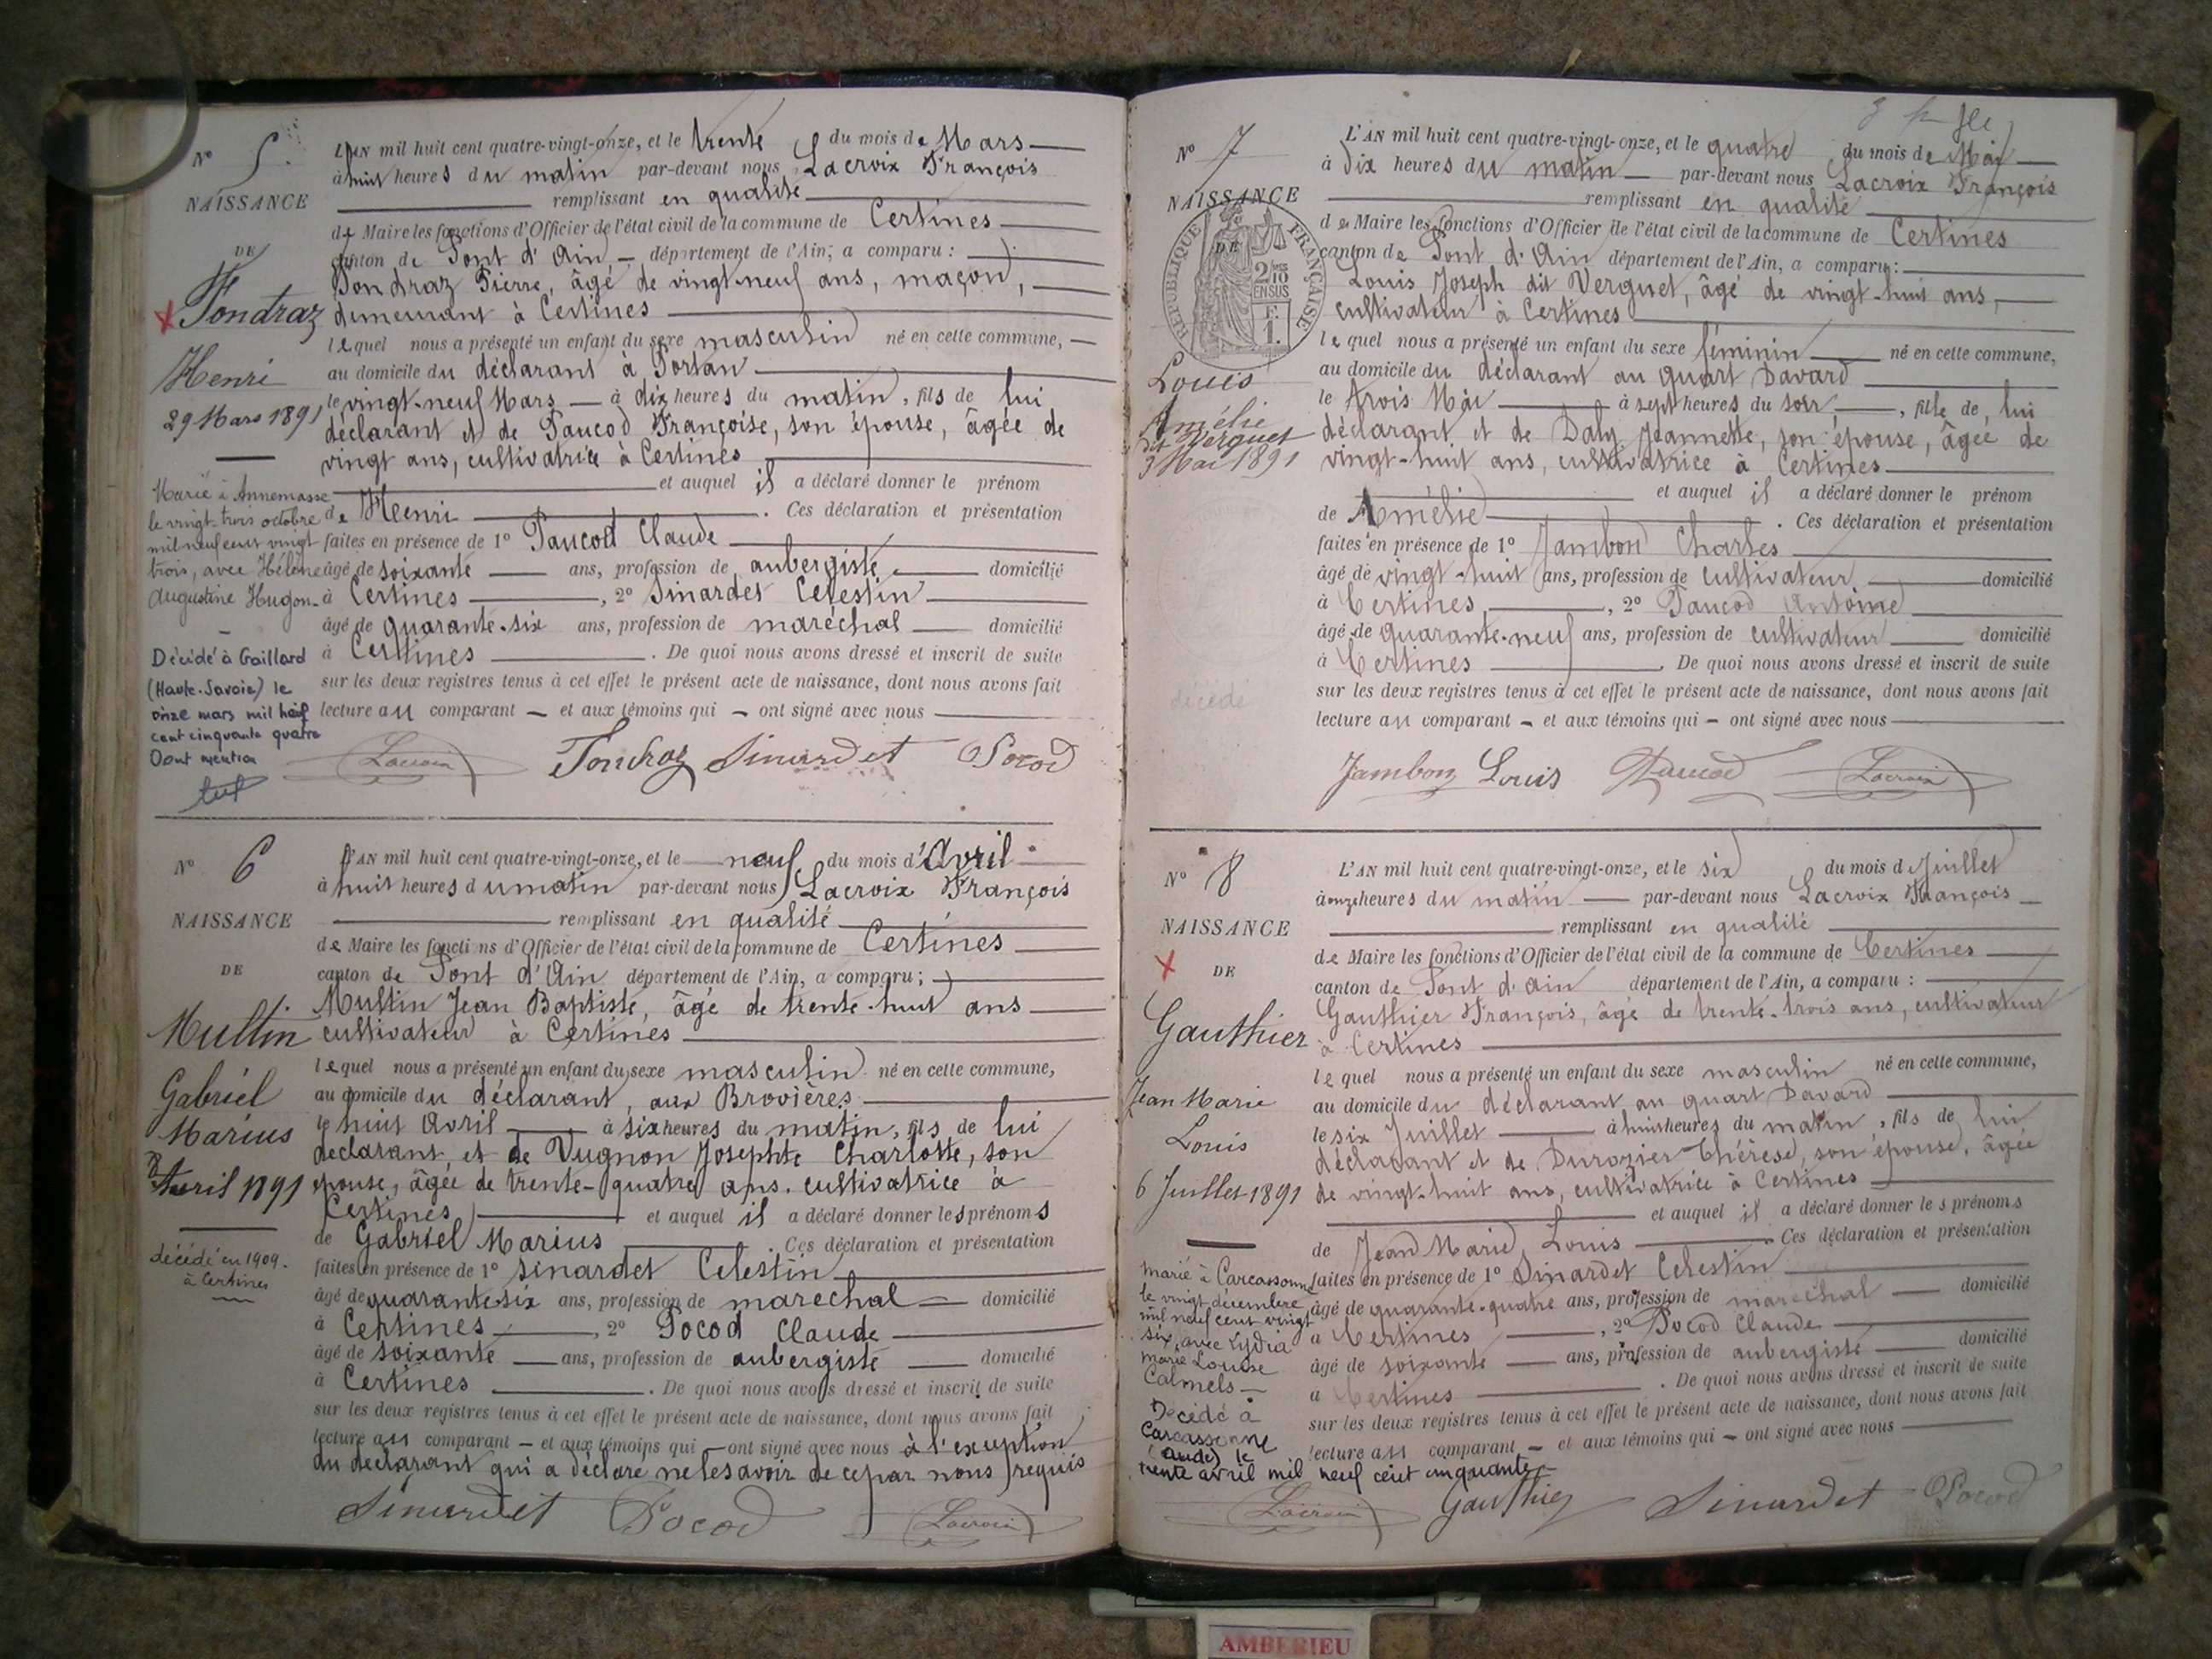 N° 5.
NAISSANCE
DE
Fondraz
Henri
29 Mars 1891
Marié à Annemasse
le vingt-trois octobre
mil neuf cent vingt
trois, avec Hélène
Augustine Hugon.
Décédé à Gaillard
(Haute-Savoie) le
onze mars mil neuf
cent cinquante quatre
Dont mention
L'AN mil huit cent quatre-vingt-onze, et le trente du mois de Mars
à huit heures du matin par-devant nous Lacroix François
remplissant en qualité
de Maire les fonctions d'Officier de l'état civil de la commune de Certines
canton de Pont d'Ain département de l'Ain, a comparu :
Fondraz Pierre, âgé de vingt-neuf ans, maçon,
demeurant à Certines
lequel nous a présenté un enfant du sexe masculin né en cette commune,
au domicile du déclarant à Portan
le vingt-neuf Mars à dix heures du matin, fils de lui
déclarant et de Paucod Françoise, son épouse, âgée de
vingt ans, cultivatrice à Certines
et auquel il a déclaré donner le prénom
de Henri . Ces déclaration et présentation
faites en présence de 1° Paucod Claude
âgé de soixante ans, profession de aubergiste domicilié
à Certines , 2° Sinardet Celestin
âgé de quarante-six ans, profession de maréchal domicilié
à Certines . De quoi nous avons dressé et inscrit de suite
sur les deux registres tenus à cet effet le présent acte de naissance, dont nous avons fait
lecture au comparant et aux témoins qui ont signé avec nous
Lacroix Fondraz Sinardet Pocod
N° 6
NAISSANCE
DE
Mullin
Gabriel
Marius
8 Avril 1891
décédé en 1909.
à Certines
L'AN mil huit cent quatre-vingt-onze, et le neuf du mois d'Avril
à huit heures du matin par-devant nous Lacroix François
remplissant en qualité
de Maire les fonctions d'Officier de l'état civil de la commune de Certines
canton de Pont d'Ain département de l'Ain, a comparu ;
Mullin Jean Baptiste, âgé de trente-huit ans
cultivateur à Certines
lequel nous a présenté un enfant du sexe masculin né en cette commune,
au domicile du déclarant, aux Brovières
le huit Avril à six heures du matin, fils de lui
declarant, et de Vugnon Josephte Charlotte, son
épouse, âgée de trente-quatre ans. cultivatrice à
Certines et auquel il a déclaré donner les prénoms
de Gabriel Marius . Ces déclaration et présentation
faites en présence de 1° Sinardet Celestin
âgé de quarante-six ans, profession de marechal domicilié
à Certines , 2° Pocod Claude
âgé de soixante ans, profession de aubergiste domicilié
à Certines . De quoi nous avons dressé et inscrit de suite
sur les deux registres tenus à cet effet le présent acte de naissance, dont nous avons fait
lecture au comparant et aux témoins qui ont signé avec nous à l'exception
du declarant qui a déclaré ne le savoir de ce par nous requis
Sinardet Pocod Lacroix
N° 7
NAISSANCE
DE
RÉPUBLIQUE FRANÇAISE
2/10
EN SUS
F.
1.
Louis
Amélie
dit Verguet
3 Mai 1891
décédé
L'AN mil huit cent quatre-vingt-onze, et le quatre du mois de Mai
à dix heures du matin par-devant nous Lacroix François
remplissant en qualité
de Maire les fonctions d'Officier de l'état civil de la commune de Certines
canton de Pont d'Ain département de l'Ain, a comparu :
Louis Joseph dit Verguet, âgé de vingt-huit ans,
cultivateur à Certines
lequel nous a présenté un enfant du sexe féminin né en cette commune,
au domicile du déclarant au quart Davard
le trois Mai à sept heures du soir , fille de lui
déclarant et de Daly Jeannette, son épouse, âgée de
vingt-huit ans, cultivatrice à Certines
et auquel il a déclaré donner le prénom
de Amélie . Ces déclaration et présentation
faites en présence de 1° Jambon Charles
âgé de vingt-huit ans, profession de cultivateur domicilié
à Certines , 2° Paucod Antoine
âgé de quarante-neuf ans, profession de cultivateur domicilié
à Certines . De quoi nous avons dressé et inscrit de suite
sur les deux registres tenus à cet effet le présent acte de naissance, dont nous avons fait
lecture au comparant et aux témoins qui ont signé avec nous
Jambon Louis Paucod Lacroix
N° 8
NAISSANCE
DE
Gauthier
Jean Marie
Louis
6 Juillet 1891
marié à Carcassonne
le vingt décembre
mil neuf cent vingt
six, avec Lydia
Marie Louise
Calmels
Décédé à
Carcassonne
(Aude) le
trente avril mil neuf cent cinquante
L'AN mil huit cent quatre-vingt-onze, et le six du mois d Juillet
à onze heures du matin par-devant nous Lacroix François
remplissant en qualité
de Maire les fonctions d'Officier de l'état civil de la commune de Certines
canton de Pont d'Ain département de l'Ain, a comparu :
Gauthier François, âgé de trente-trois ans, cultivateur
à Certines
lequel nous a présenté un enfant du sexe masculin né en cette commune,
au domicile du déclarant au quart Davard
le six Juillet à huit heures du matin, fils de lui
déclarant et de Durozier Thérèse, son épouse, âgée
de vingt-huit ans, cultivatrice à Certines
et auquel il a déclaré donner les prénoms
de Jean Marie Louis . Ces déclaration et présentation
faites en présence de 1° Sinardet Celestin
âgé de quarante-quatre ans, profession de maréchal domicilié
à Certines , 2° Pocod Claude
âgé de soixante ans, profession de aubergiste domicilié
à Certines . De quoi nous avons dressé et inscrit de suite
sur les deux registres tenus à cet effet le présent acte de naissance, dont nous avons fait
lecture au comparant et aux témoins qui ont signé avec nous
Lacroix Gauthier Sinardet Pocod
AMBERIEU